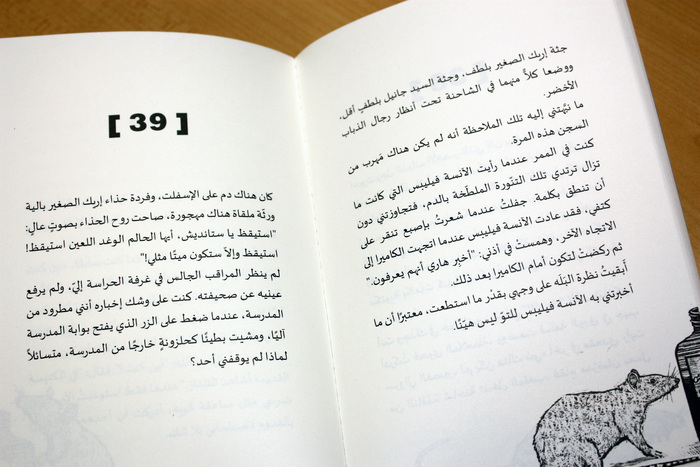 جثة إربك الصغير بلطف، وجثة السيد جانيل بلطفٍ أقل،
ووضعا كلاً منهما في الشاحنة تحت أنظار رجال الذباب
الأخضر.
ما نبَّهتني إليه تلك الملاحظة أنه لم يكن هناك مَهرب من
السجن هذه المرة.
كنت في الممر عندما رأيت الآنسة فيليبس التي كانت ما
تزال ترتدي تلك التنّورة الملطّخة بالدم، فتجاوزتني دون
أن تنطق بكلمة. جفلتُ عندما شعرتُ بإصبع تنقر على
كتفي، فقد عادت الآنسة فيليبس عندما اتجهت الكاميرا إلى
الاتجاه الآخر، وهمستْ في أذني: "أخبر هاري أنهم يعرفون."
ثم ركضتْ لتكون أمام الكاميرا بعد ذلك.
أبقيتُ نظرة البَلَه على وجهي بقدْر ما استطعت، معتبرًا أن ما
أخبرتني به الآنسة فيليبس للتوّ ليس هيّنًا.
[ 39 ]
كان هناك دم على الإسفلت، وفردة حذاء إربك الصغير بالية
ورثّة ملقاة هناك مهجورة، صاحت روح الحذاء بصوتٍ عالٍ:
"استيقظ يا ستانديش، أيها الحالم الوغد اللعين استيقظ!
استيقظ وإلاّ ستكون ميتًا مثلي!"
لم ينظر المراقب الجالس في غرفة الحراسة إليّ، ولم يرفع
عينيه عن صحيفته. كنت على وشك إخباره أنني مطرود من
المدرسة، عندما ضغط على الزر الذي يفتح بوابة المدرسة
آليًا، ومشيت بطيئًا كحلزونةٍ خارجًا من المدرسة، متسائلاً
لماذا لم يوقفني أحد؟